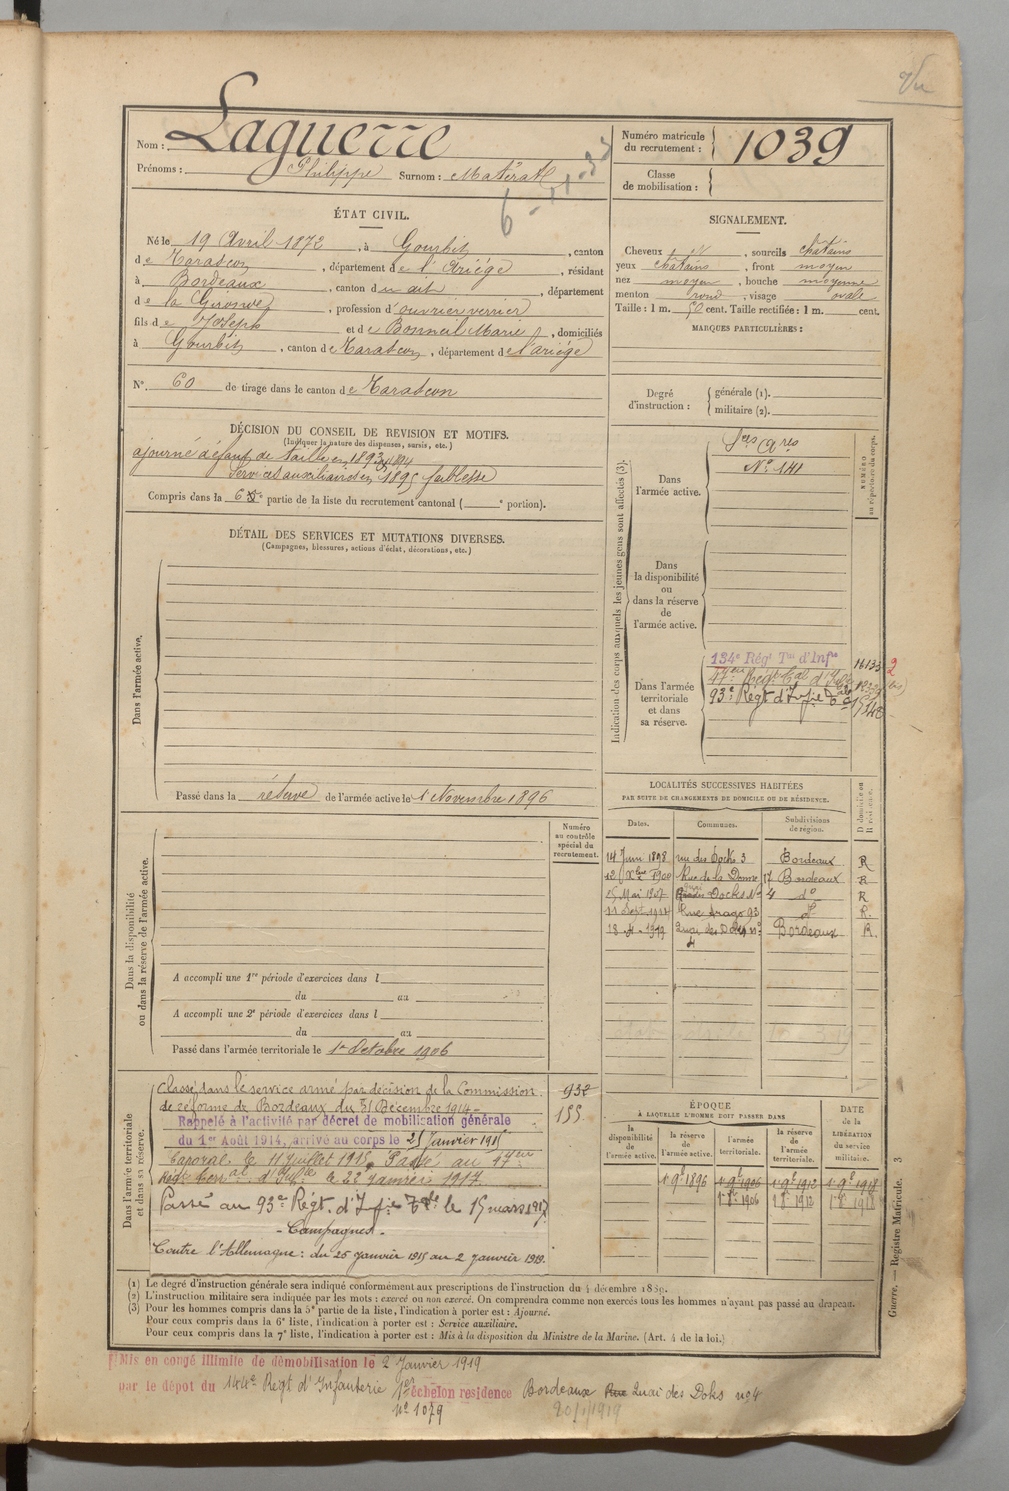 Vu
Nom : Laguerre
Prénoms : Philippe Surnom : Matérat
6-11-33
Numéro matricule du recrutement : 1039
Classe de mobilisation :
ÉTAT CIVIL.
Né le 19 Avril 1872, à Gourbit, canton
de Tarascon, département de l'Ariége, résidant
à Bordeaux, canton du dit, département
de la Gironde, profession d'ouvrier verrier
fils de Joseph et de Bonneil Marie, domiciliés
à Gourbit, canton de Tarascon, département de l'ariége
N° 60 de tirage dans le canton de Tarascon
SIGNALEMENT.
Cheveux, sourcils châtains
yeux châtains, front moyen
nez moyen, bouche moyenne
menton rond, visage ovale
Taille : 1 m. 50 cent. Taille rectifiée : 1 m. cent.
MARQUES PARTICULIÈRES :
Degré d'instruction : générale (1).
militaire (2).
DÉCISION DU CONSEIL DE REVISION ET MOTIFS.
(Indiquer la nature des dispenses, sursis, etc.)
ajourné défaut de taille en 1893 et 1894
Services auxiliaires en 1895 faiblesse
Compris dans la 6e partie de la liste du recrutement cantonal ( e portion).
DÉTAIL DES SERVICES ET MUTATIONS DIVERSES.
(Campagnes, blessures, actions d'éclat, décorations, etc.)
Dans l'armée active.
Passé dans la réserve de l'armée active le 1 Novembre 1896
Indication des corps auxquels les jeunes gens sont affectés (3).
NUMÉRO au répertoire du corps.
Dans l'armée active.
Sces Ares
N° 141
Dans la disponibilité ou dans la réserve de l'armée active.
Dans l'armée territoriale et dans sa réserve.
134e Régt Tal d'Infie 16133
17eme Régt Cal d'Infie
93e Regt d'Infie Tale 15148
LOCALITÉS SUCCESSIVES HABITÉES
PAR SUITE DE CHANGEMENTS DE DOMICILE OU DE RÉSIDENCE.
Dates. Communes. Subdivisions de région. D domicile ou R résidence.
14 Juin 1898 rue des Docks 3 Bordeaux R
12 Xbre 1900 Rue de la Douve 17 Bordeaux R
25 Mai 1907 Docks N° 4 d° R
11 Sept 1914 Rue Arago 93 d° R.
18-4-1919 Quai des Docks n° 4 Bordeaux R.
Dans la disponibilité ou dans la réserve de l'armée active.
Numéro au contrôle spécial du recrutement.
A accompli une 1re période d'exercices dans l
du au
A accompli une 2e période d'exercices dans l
du au
Passé dans l'armée territoriale le 1er Octobre 1906
Dans l'armée territoriale et dans sa réserve.
Classé dans le service armé par décision de la Commission 932
de réforme de Bordeaux du 31 Décembre 1914 - 155
Rappelé à l'activité par décret de mobilisation générale
du 1er Août 1914, arrivé au corps le 25 Janvier 1915
Caporal le 11 Juillet 1915. Passé au 17eme
Régt Terral d'Infie le 22 janvier 1917.
Passé au 93e Régt. d'Infie Tale le 15 mars 1917
- Campagnes -
Contre l'Allemagne : du 25 janvier 1915 au 2 janvier 1919.
ÉPOQUE
À LAQUELLE L'HOMME DOIT PASSER DANS
DATE de la LIBÉRATION du service militaire.
la disponibilité de l'armée active. la réserve de l'armée active. l'armée territoriale. la réserve de l'armée territoriale.
1 9e 1896 1 9e 1906 1 9e 1912 1 9e 1918
1 8e 1906 1 8e 1912 1 8e 1918
(1) Le degré d'instruction générale sera indiqué conformément aux prescriptions de l'instruction du 4 décembre 1889.
(2) L'instruction militaire sera indiquée par les mots : exercé ou non exercé. On comprendra comme non exercés tous les hommes n'ayant pas passé au drapeau.
(3) Pour les hommes compris dans la 5e partie de la liste, l'indication à porter est : Ajourné.
Pour ceux compris dans la 6e liste, l'indication à porter est : Service auxiliaire.
Pour ceux compris dans la 7e liste, l'indication à porter est : Mis à la disposition du Ministre de la Marine. (Art. 4 de la loi.)
Guerre. — Registre Matricule. 3
Mis en congé illimité de démobilisation le 2 Janvier 1919
par le dépot du 144e Regt d'Infanterie 1er échelon residence Bordeaux Rue Quai des Doks n° 4
n° 1079 20/1/1919